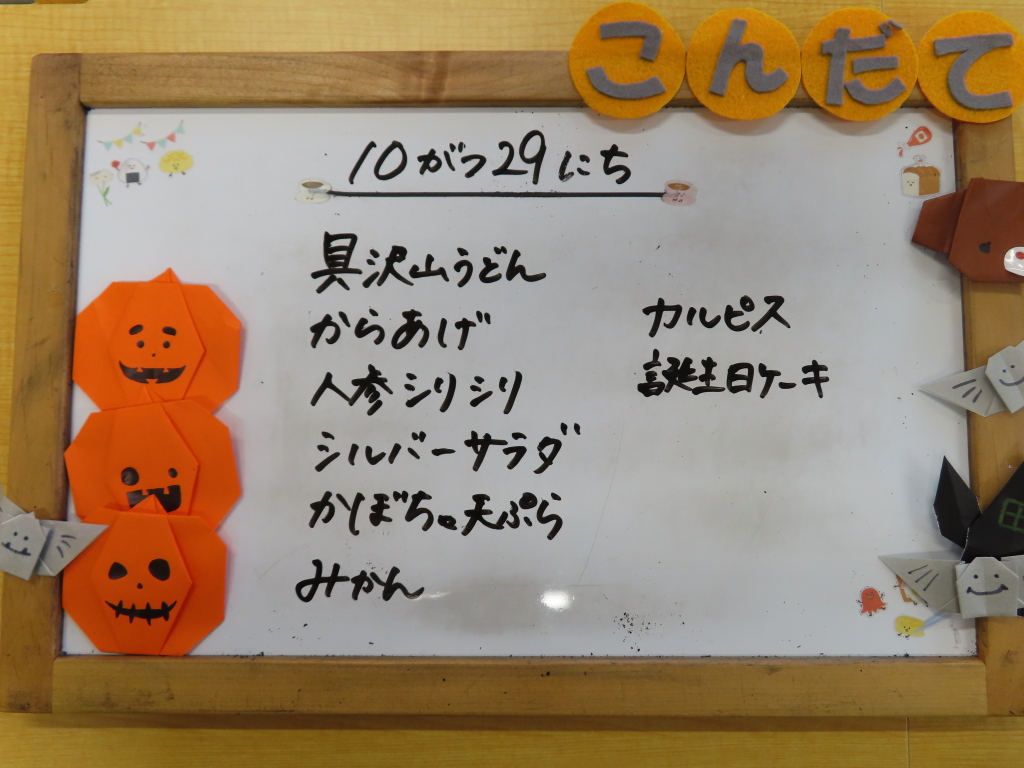 こんだて
10がつ29にち
具沢山うどん
からあげ
人参シリシリ
シルバーサラダ
かぼちゃ天ぷら
みかん
カルピス
誕生日ケーキ